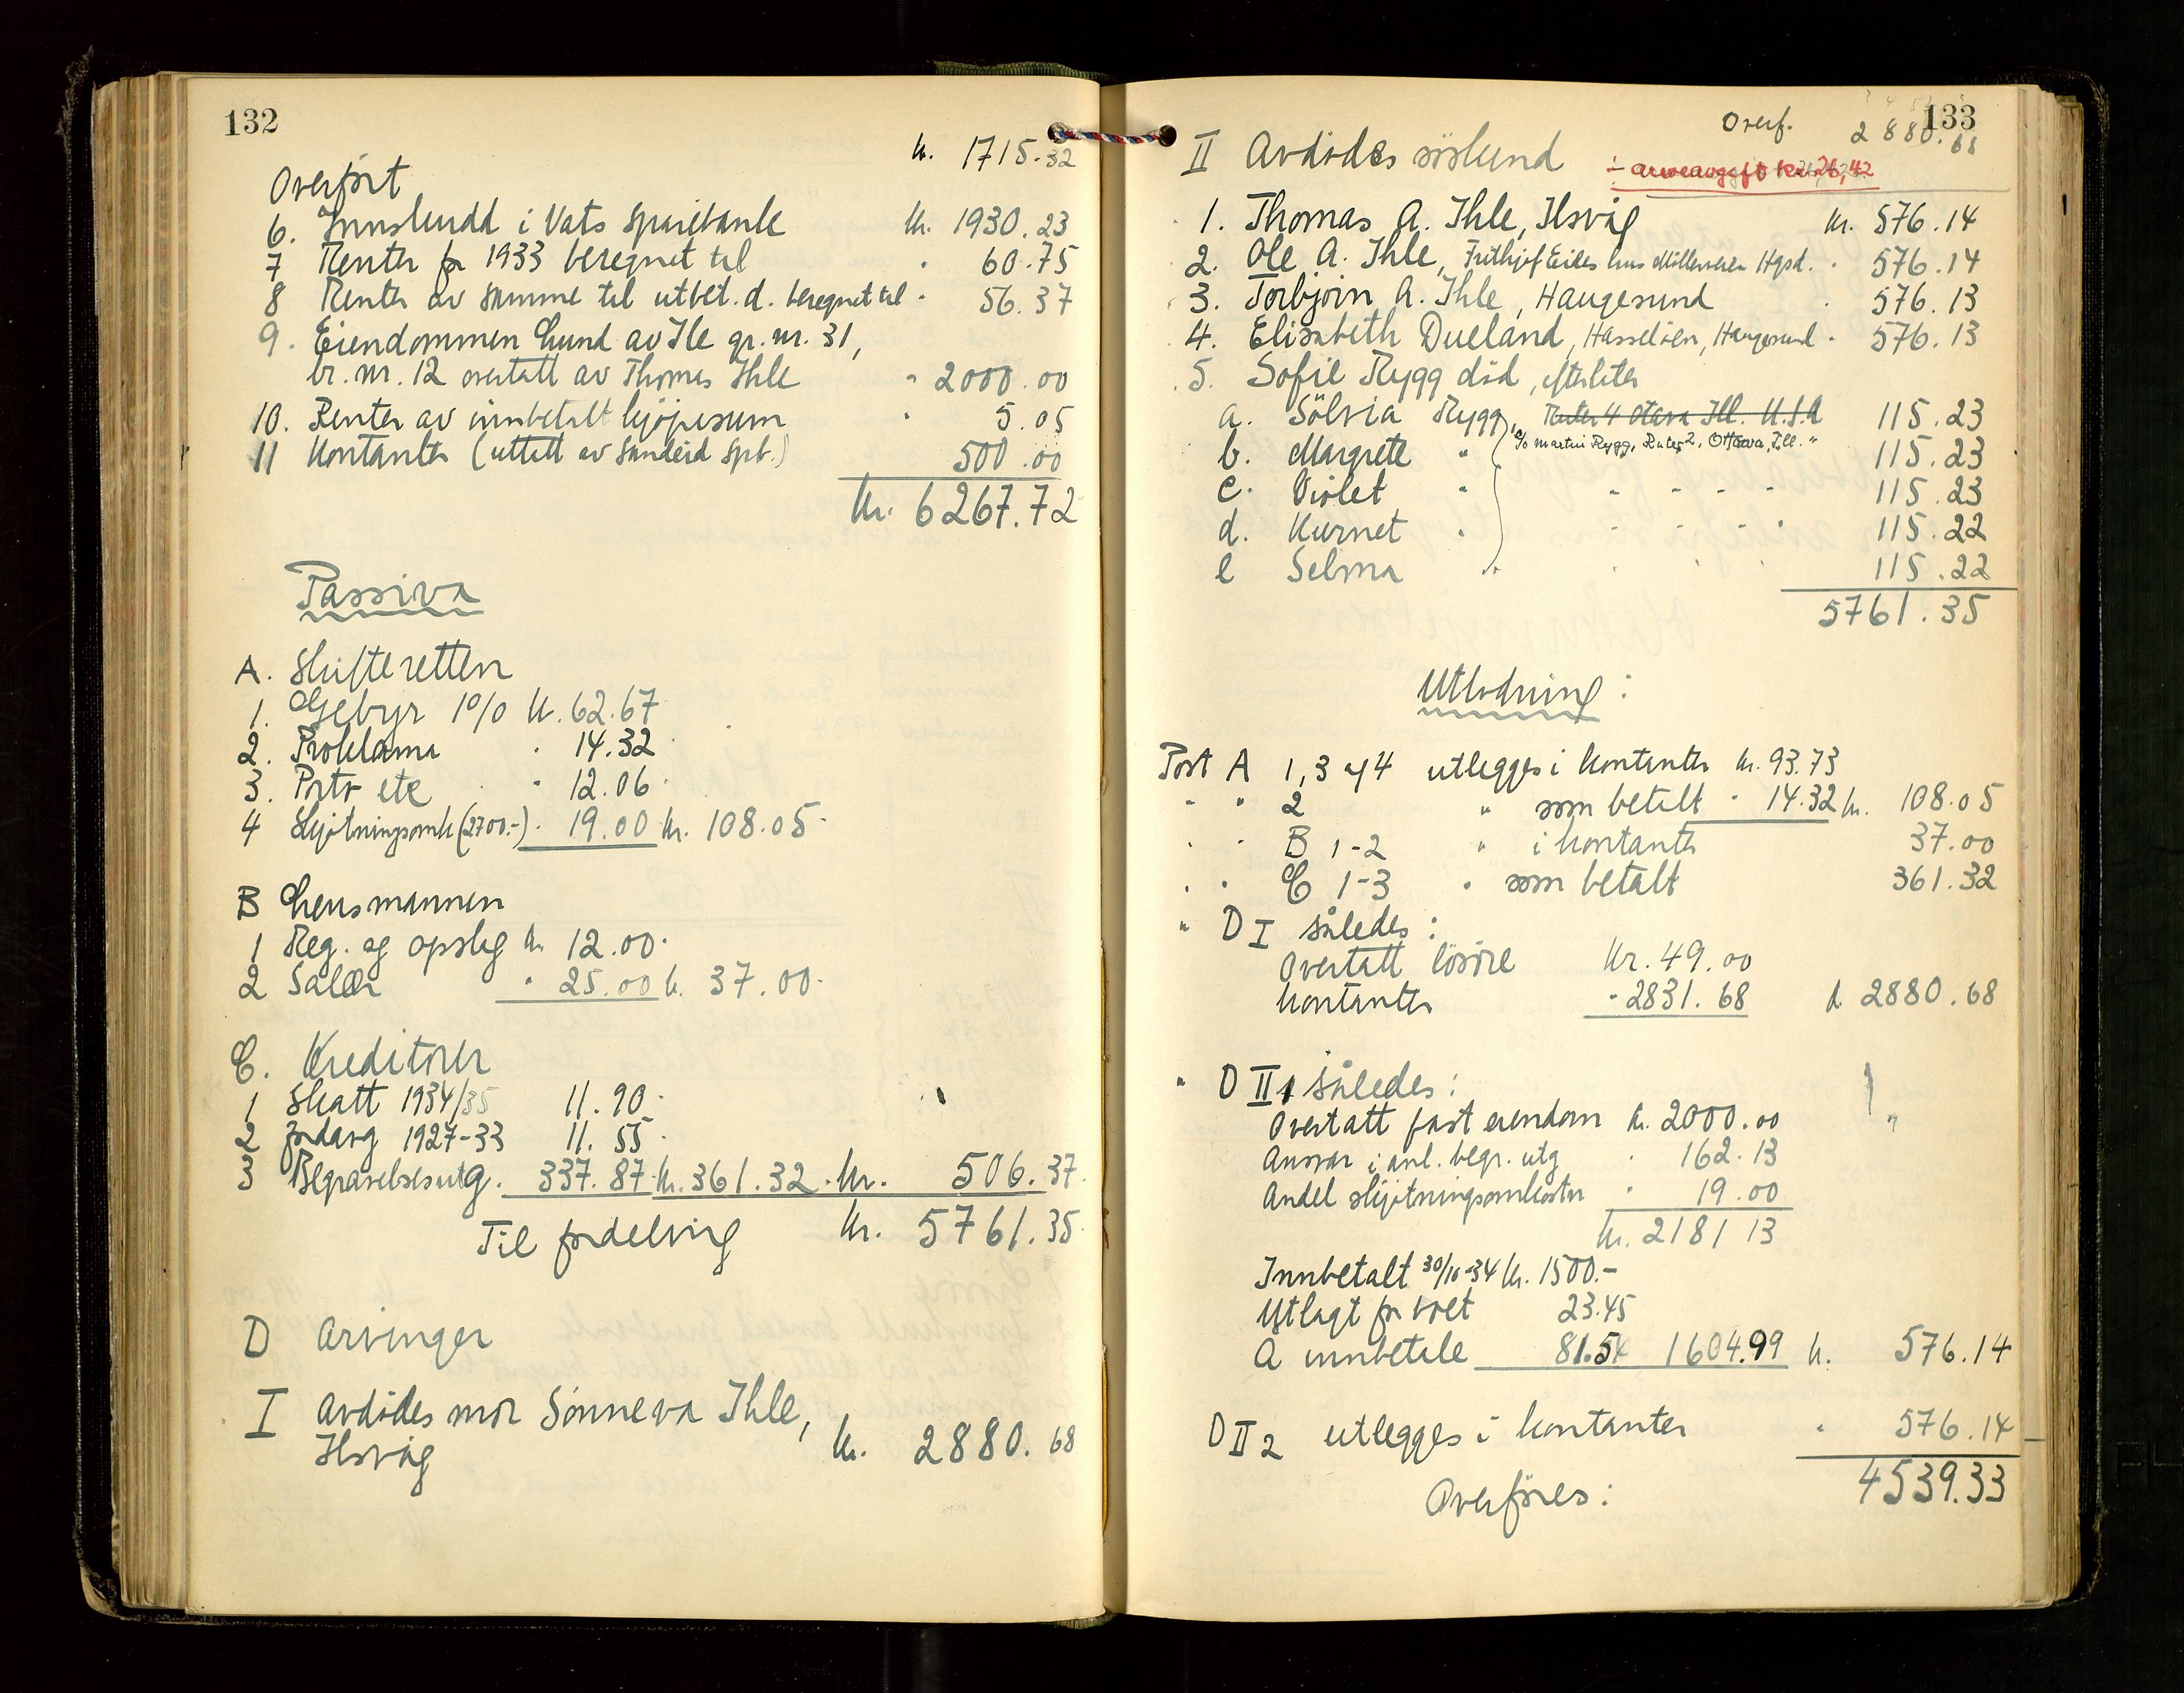 132
Overført kr. 1715.32
6. Innskudd i Vats Sparebank kr. 1930.23
7 Renter for 1933 beregnet til " 60.75
8 Renter av samme til utbet.d. beregnet til " 56.37
9. Eiendommen Lund av Ile gr.nr. 31,
br.nr. 12 overtatt av Thomas Ihle " 2000.00
10. Renter av innbetalt kjöpesum " 5.05
11 Kontanter (uttatt av Sandeid Spb.) 500.00
Kr. 6267.72
Passiva
A. Skifteretten
1. Gebyr 1% kr. 62.67
2. Proklama " 14.32
3. Porto etc " 12.06
4 Skjötningsomk (2700.-) " 19.00 kr. 108.05
B Lensmannen
1 Reg. og opslag kr. 12.00
2 Salær " 25.00 kr. 37.00
C. Kreditorer
1 Skatt 1934/35 11.90
2 Jordavg 1927-33 11.55
3 Begravelsesutg. 337.87 kr. 361.32 kr. 506.37
Til fordeling kr. 5761.35
D Arvinger
I Avdödes mor Sønneva Ihle,
Ilsvåg kr. 2880.68
133
Overf. 2880.68
II Avdödes söskend
÷ arveavgift kr. 26,42
1. Thomas A. Ihle, Ilsvåg kr. 576.14
2. Ole A. Ihle, Frithjof Eides hus Möllerveien Hgsd. " 576.14
3. Torbjörn A. Ihle, Haugesund " 576.13
4. Elisabeth Dueland, Hasselöen, Haugesund " 576.13
5. Sofie Rygg död, efterlater
a. Sölvia Rygg, Ruter 4 Otava Ill. U.S.A 115.23
c/o Martin Rygg, Rute 2, Ottawa, Ill. "
b. Margrete " 115.23
c. Violet " " " " " 115.23
d. Kurnet " " " " " 115.22
e Selma " " " " 115.22
5761.35
Utlodning:
Post A 1, 3 og 4 utlegges i kontanter kr. 93.73
" " 2 " som betalt " 14.32 kr. 108.05
" " B 1-2 " i kontanter 37.00
" " C 1-3 " som betalt 361.32
" D I således:
Overtatt lösöre Kr. 49.00
Kontanter " 2831.68 kr. 2880.68
" D II 1 således:
Overtatt fast eiendom kr. 2000.00 "
Ansvar i anl. begr. utg " 162.13
Andel skjötningsomkostn " 19.00
kr. 2181 13
Innbetalt 30/10-34 kr. 1500.-
Utlagt for boet 23.45
Å innbetale 81.54 1604.99 kr. 576.14
D II 2 utlegges i kontanter " 576.14
Overföres: 4539.33